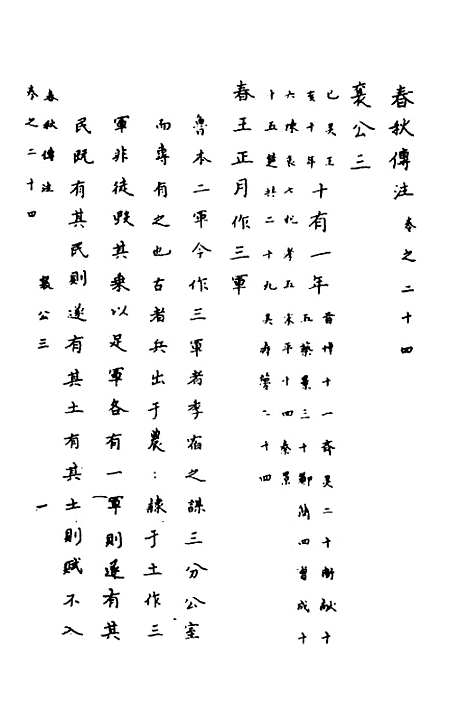 春秋傳注 卷之二十四
襄公三
十有一年 晉悼十一齊靈二十衛獻十
五蔡景三十鄭簡四曹成十
六陳哀七杞孝五宋平十四秦景
十五楚共二十九吳壽夢二十四
春王正月作三軍
魯本二軍今作三軍者季宿之謀三分公室
而專有之也古者兵出于農:隸于土作三
軍非徒毁其乘以足軍各有一軍則遂有其
民既有其民則遂有其土有其土則賦不入
春秋傳注
卷之二十四 襄公三 一